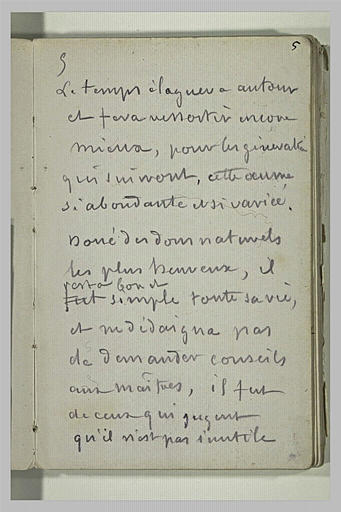 5
5
Le temps élaguera autour
et fera ressortir encore
mieux, pour les générations
qui suivront, cette œuvre
si abondante et si variée.
Doué des dons naturels
les plus heureux, il
resta bon et
fut simple toute sa vie,
et ne dédaigna pas
de demander conseils
aux maîtres, il fut
de ceux qui jugent
qu'il n'est pas inutile